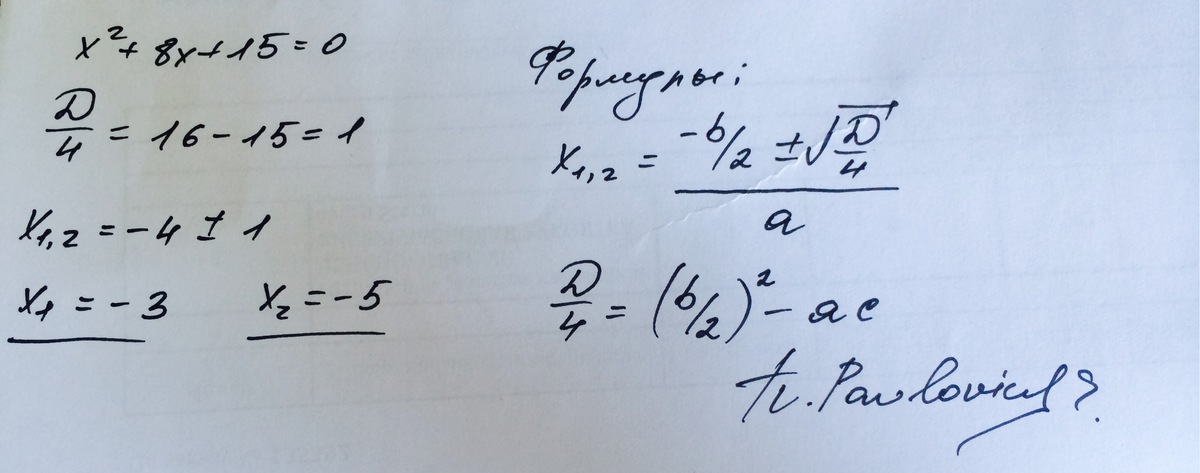 x² + 8x + 15 = 0
D/4 = 16 - 15 = 1
x₁,₂ = -4 ± 1
x₁ = -3 x₂ = -5
Формулы:
x₁,₂ = (-b/2 ± √(D/4)) / a
D/4 = (b/2)² - ac